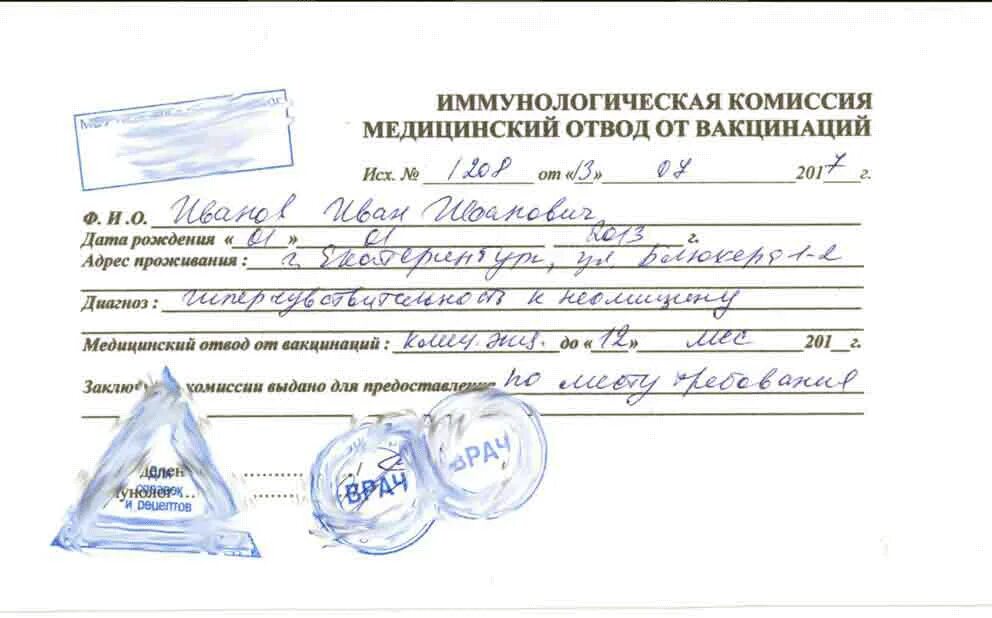 ИММУНОЛОГИЧЕСКАЯ КОМИССИЯ
МЕДИЦИНСКИЙ ОТВОД ОТ ВАКЦИНАЦИЙ
Исх. № 1208 от «13» 07 2017 г.
Ф. И .О. Иванов Иван Иванович
Дата рождения « 01 » 01 2013 г.
Адрес проживания : г. Екатеринбург, ул. Блюхера 1-2
Диагноз : гиперчувствительность к неомицину
Медицинский отвод от вакцинаций : до « 12 » мес 201 г.
комиссии выдано для предоставления по месту требования
для
справок
и рецептов
ВРАЧ
ВРАЧ